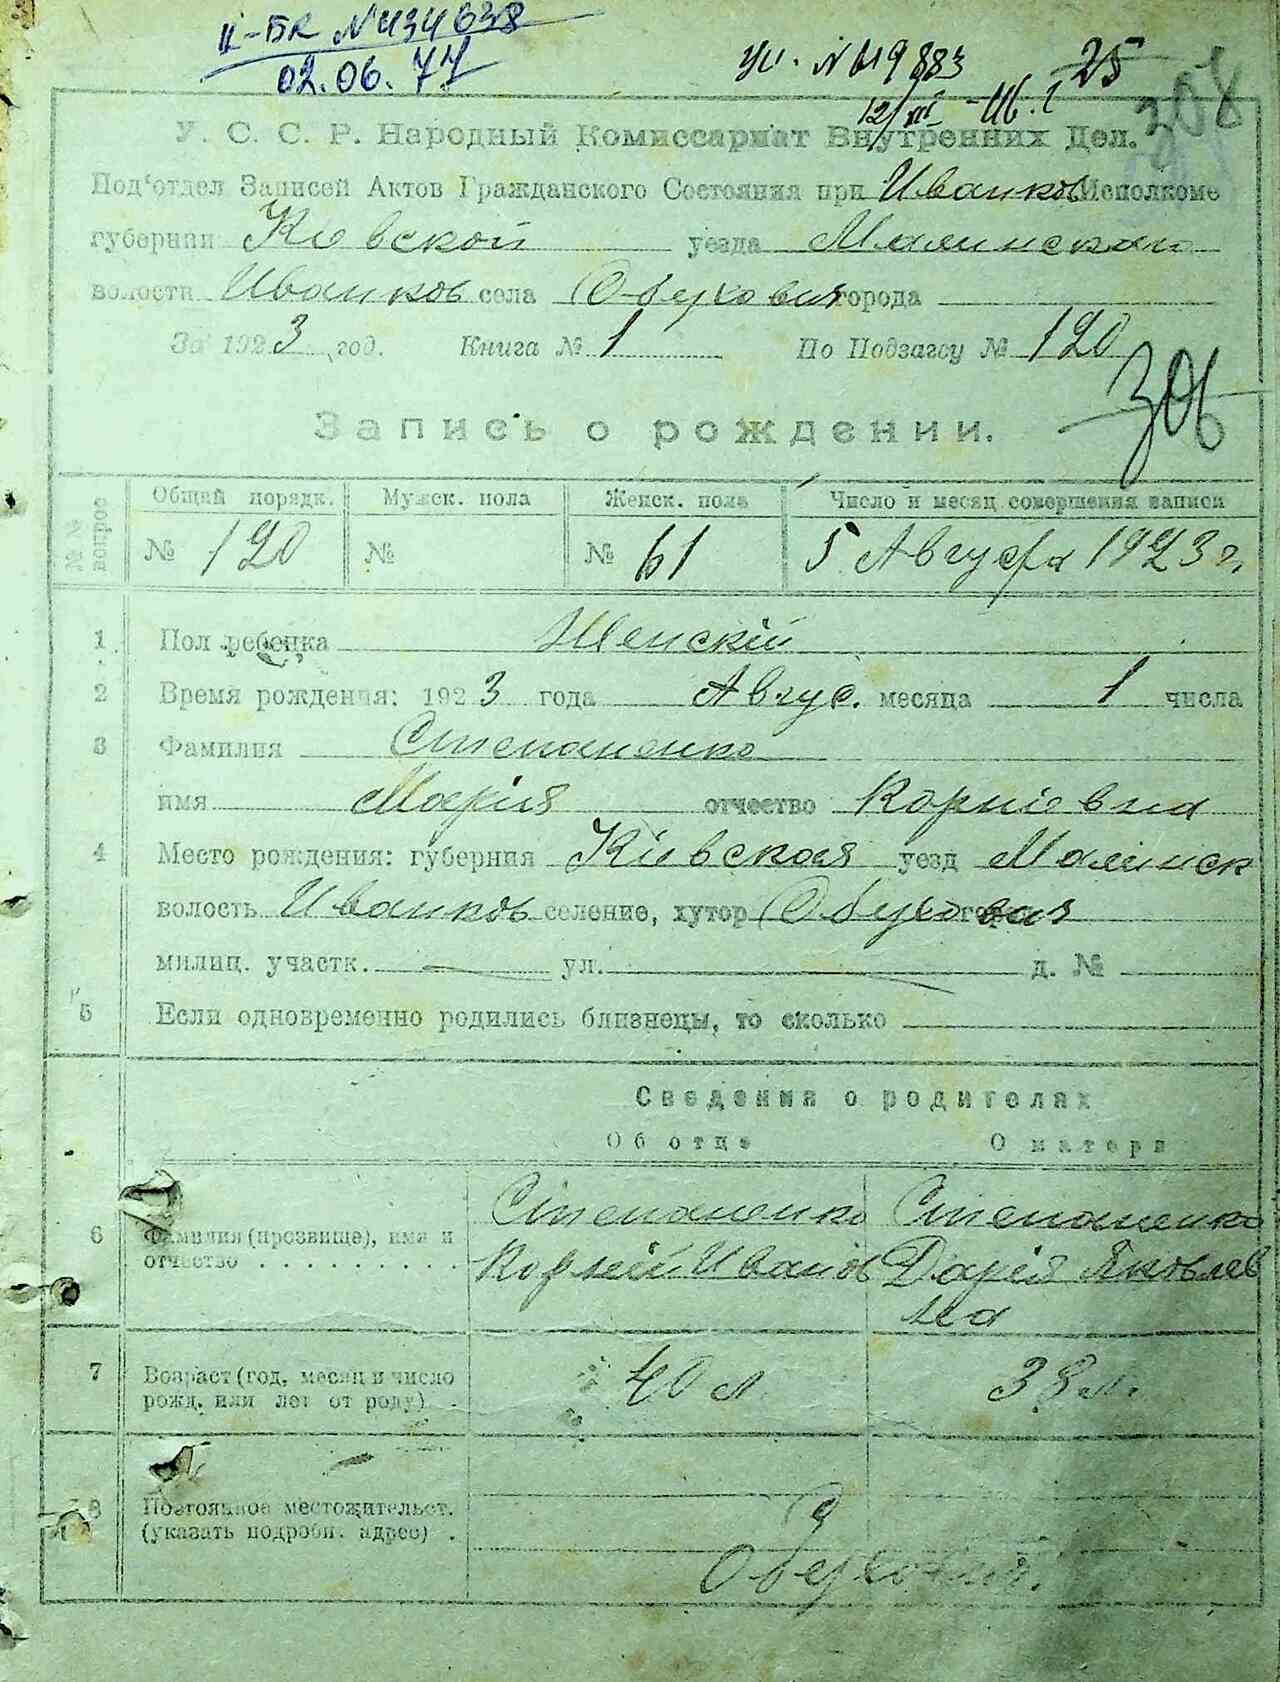 II-БК №434638
02.06.77
25
208
У. С. С. Р. Народный Комиссариат Внутренних Дел.
Под'отдел Записей Актов Гражданского Состояния при Иванков Исполкоме
губернии Киевской уезда Малинскаго
волости Иванков села Обуховия города
За 1923 год. Книга № 1 По Подзагсу № 120
306
Запись о рождении.
№№ вопрос
Общий порядк. Мужск. пола Женск. пола Число и месяц совершения записи
№ 120 № № 61 5 Августа 1923 г.
1 Пол ребенка Женскій
2 Время рождения: 1923 года Авгус. месяца 1 числа
3 Фамилия Степаненко
имя Марія отчество Корніевна
4 Место рождения: губерния Кіевская уезд Малинск
волость Иванков селение, хутор Обуховия
милиц. участк. ул. д. №
5 Если одновременно родились близнецы, то сколько
Сведения о родителях
Об отце О матери
Степаненко Степаненко
6 Фамилия (прозвище), имя и
отчество Корній Иванов Дарія Яковлев
на
7 Возраст (год, месяц и число
рожд. или лет от роду) 40 л 38 л.
8 Постоянное местожительст.
(указать подробн. адрес)
С
Обуховичи.